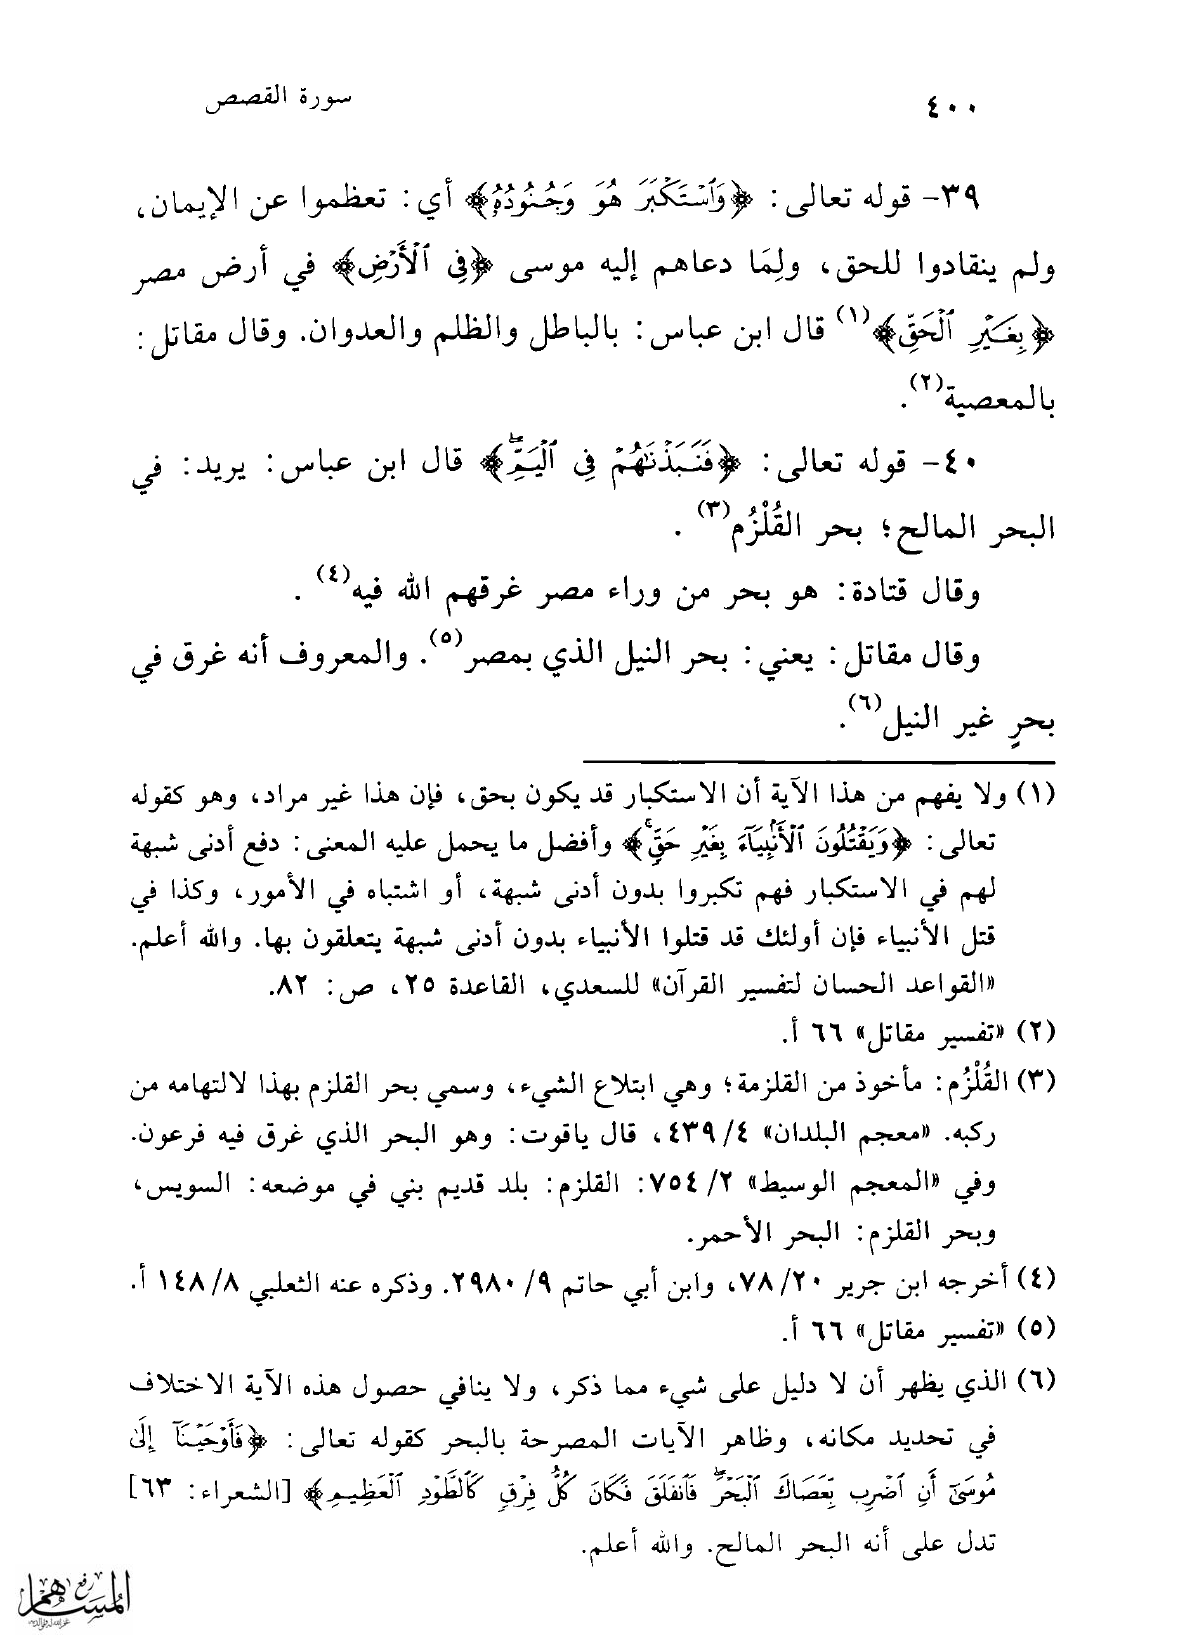 ٤٠٠
سورة القصص
٣٩- قوله تعالى: ﴿وَٱسْتَكْبَرَ هُوَ وَجُنُودُهُۥ﴾ أي: تعظموا عن الإيمان،
ولم ينقادوا للحق، ولِمَا دعاهم إليه موسى ﴿فِى ٱلْأَرْضِ﴾ في أرض مصر
﴿بِغَيْرِ ٱلْحَقِّ﴾(١) قال ابن عباس: بالباطل والظلم والعدوان. وقال مقاتل:
بالمعصية(٢).
٤٠- قوله تعالى: ﴿فَنَبَذْنَٰهُمْ فِى ٱلْيَمِّ ۖ﴾ قال ابن عباس: يريد: في
البحر المالح؛ بحر القُلْزُم(٣).
وقال قتادة: هو بحر من وراء مصر غرقهم الله فيه(٤).
وقال مقاتل: يعني: بحر النيل الذي بمصر(٥). والمعروف أنه غرق في
بحرٍ غير النيل(٦).
(١) ولا يفهم من هذا الآية أن الاستكبار قد يكون بحق، فإن هذا غير مراد، وهو كقوله
تعالى: ﴿وَيَقْتُلُونَ ٱلْأَنۢبِيَآءَ بِغَيْرِ حَقٍّ ۚ﴾ وأفضل ما يحمل عليه المعنى: دفع أدنى شبهة
لهم في الاستكبار فهم تكبروا بدون أدنى شبهة، أو اشتباه في الأمور، وكذا في
قتل الأنبياء فإن أولئك قد قتلوا الأنبياء بدون أدنى شبهة يتعلقون بها. والله أعلم.
«القواعد الحسان لتفسير القرآن» للسعدي، القاعدة ٢٥، ص: ٨٢.
(٢) «تفسير مقاتل» ٦٦ أ.
(٣) القُلْزُم: مأخوذ من القلزمة؛ وهي ابتلاع الشيء، وسمي بحر القلزم بهذا لالتهامه من
ركبه. «معجم البلدان» ٤/ ٤٣٩، قال ياقوت: وهو البحر الذي غرق فيه فرعون.
وفي «المعجم الوسيط» ٢/ ٧٥٤: القلزم: بلد قديم بني في موضعه: السويس،
وبحر القلزم: البحر الأحمر.
(٤) أخرجه ابن جرير ٢٠/ ٧٨، وابن أبي حاتم ٩/ ٢٩٨٠. وذكره عنه الثعلبي ٨/ ١٤٨ أ.
(٥) «تفسير مقاتل» ٦٦ أ.
(٦) الذي يظهر أن لا دليل على شيء مما ذكر، ولا ينافي حصول هذه الآية الاختلاف
في تحديد مكانه، وظاهر الآيات المصرحة بالبحر كقوله تعالى: ﴿فَأَوْحَيْنَآ إِلَىٰ
مُوسَىٰٓ أَنِ ٱضْرِب بِّعَصَاكَ ٱلْبَحْرَ ۖ فَٱنفَلَقَ فَكَانَ كُلُّ فِرْقٍ كَٱلطَّوْدِ ٱلْعَظِيمِ﴾ [الشعراء: ٦٣]
تدل على أنه البحر المالح. والله أعلم.
رفع
المساهم